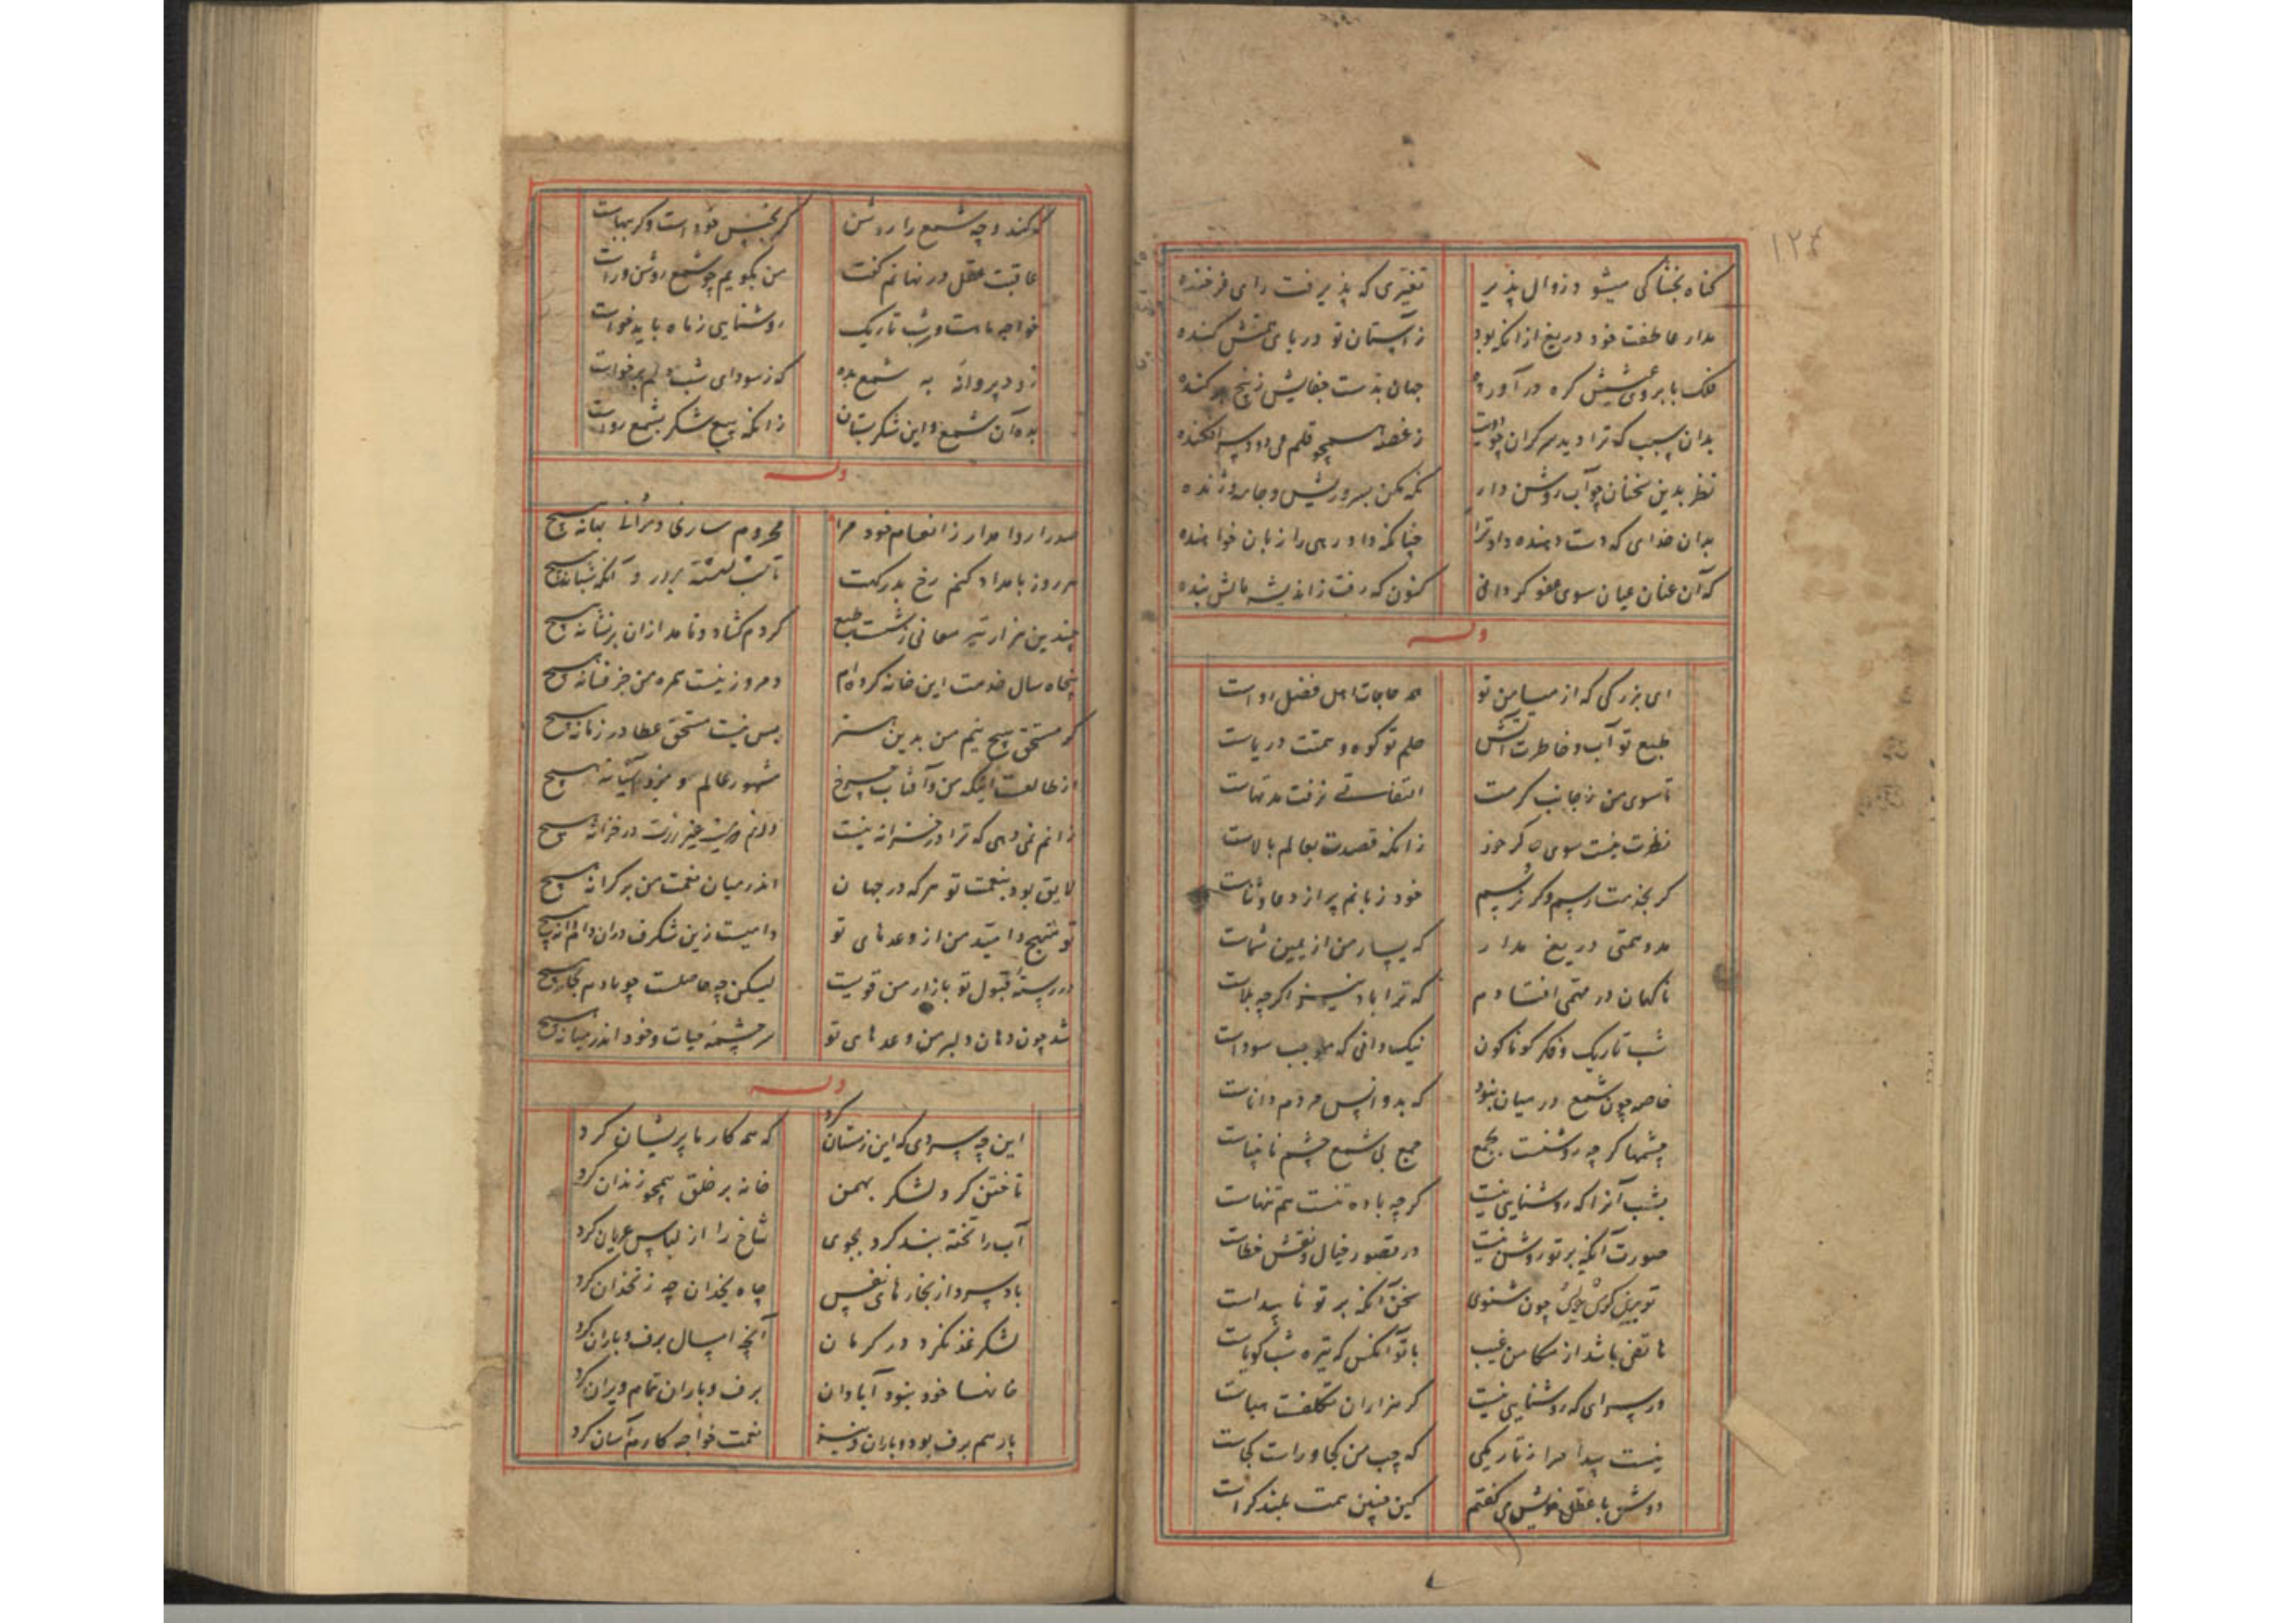 ۱۲۴
گناه بخشا کی میشود زوال پذیر تغیری که پذیرفت رای فرخنده
مدار عاطفت خود دریغ از آنکه بود ز آستان تو در پای تنش کنده
فلک بابروی عیشش گره در آورده جهان بدست جفایش ز بیخ برکنده
بدان سبب که ترا دید سرگران چو دویت ز غصه همچو قلم می‌دود سرافکنده
نظر بدین سخنان چو آب روشن دار نگه مکن بسر و ریش و جامه ژنده
بدان خدای که دست دهنده داد ترا چنانکه داد رهی را زبان خواهنده
که آن عنان عیان سوی عفو گردانی کنون که رفت ز اندیشه مالش بنده
وله
ای بزرگی که از میامن تو همه حاجات اهل فضل رواست
طبع تو آب و خاطرت آتش حلم تو کوه و همتت دریاست
تا سوی من ز جانب کرمت التفاتی نرفت مدتهاست
نظرت نیست سوی چاکر خود زانکه قصدت بعالم بالاست
گر بخدمت رسیم و گر نرسیم خود زبانم پر از دعا و ثناست
مدد همتی دریغ مدار که یسار من از یمین شماست
ناگهان در مهمی افتادم که ترا باد نیز اگرچه بلاست
شب تاریک و فکر گوناگون نیک دانی که موجب سوداست
خاصه چون شمع در میان نبود که بدو انس مردم داناست
چشمها گرچه روشنست بجمع جمع بی شمع چشم نابیناست
بشب آنرا که روشنایی نیست گرچه با ده تنست هم تنهاست
صورت آنکه بر تو روشن نیست در تصور خیال و نقش خطاست
تو برین گوش چون شنوی سخن آنکه بر تو ناپیداست
هاتفی باشد از مکامن غیب با تو آنکس که تیره شب گویاست
در سرای که روشنایی نیست گر هزاران تکلفت هباست
نیست پیدا مرا ز تاریکی که چپ من کجا و راست کجاست
دوش با عقل خویش می گفتم کین چنین همت بلند کراست
کو کند وجه شمع را روشن گر بجنس خودست و گر ببهاست
عاقبت عقل در نهانم گفت من بگویم چو شمع روشن و راست
خواجه ماهست و شب تاریک روشنایی ز ماه باید خواست
زود پروانه به شمع بده که ز سودای شب دلم برخواست
بده آن شمع و این شکر بستان زانکه بیع شکر بشمع رواست
وله
صدرا روا مدار ز انعام خود مرا محروم ساری و برانی بهانه هیچ
هر روز بامداد کنم رخ بدرگهت تا شب نشسته بر در و آنگه شبانه هیچ
چندین هزار تیر معانی ز شست طبع کردم گشاد و نامد از آن بر نشانه هیچ
پنجاه سال خدمت این خانه کرده‌ام و امروز نیست بهره من جز فسانه هیچ
گر مستحق هیچ نیم من بدین هنر پس نیست مستحق عطا در زمانه هیچ
از طالعست اینکه من و آفتاب چرخ مشهور عالمیم و میزد آشیانه هیچ
زانم نمی دهی که ترا در خزانه نیست دانم که نیست غیر زرت در خزانه هیچ
لایق بود بنعمت تو هر که در جهان اندر میان نعمت من بر کرانه هیچ
تو منتهج و امید من از وعدهای تو وامیست زین شگرف در آن وام دانه هیچ
در رسته قبول تو بازار من قویست لیکن چه حاصلست چو بادم بخانه هیچ
شد چون دهان دلبر من وعدهای تو سر چشمه حیات و خود اندر میانه هیچ
وله
این چه سردی که این زمستان کرد که همه کار ما پریشان کرد
تاختن کرد لشکر بهمن خانه بر خلق همچو زندان کرد
آب را تخته بند کرد بجوی شاخ را از لباس عریان کرد
باد سرد از بخارهای نفس چاه یخدان چه زنخدان کرد
لشکر غز نکرد در کرمان آنچه امسال برف و باران کرد
خانها خود نبود آبادان برف و باران تمام ویران کرد
پار هم برف بود و باران نیز نعمت خواجه کارم آسان کرد